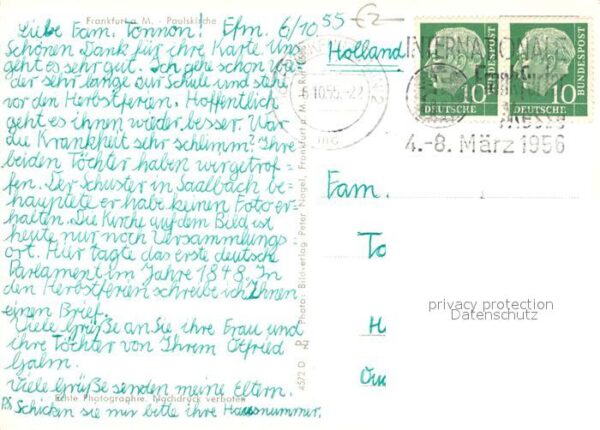 Frankfurt a. M. - Paulskirche
Liebe Fam. Tonnon! Ffm. 6/10.55
Schönen Dank für ihre Karte Uns
geht es sehr gut. Ich gehe schon wie
der sehr lange zur Schule und stehe
vor den Herbstferien. Hoffentlich
geht es ihnen wieder besser. War
die Krankheit sehr schlimm? Ihre
beiden Töchter haben wir getrof-
fen. Der Schuster in Saalbach be-
hauptete er habe keinen Foto er-
halten. Die Kirche auf dem Bild ist
heute nur noch Versammlungs-
ort. Hier tagte das erste deutsche
Parlament im Jahre 1848. In
den Herbstferien schreibe ich Ihnen
einen Brief.
Viele Grüße an Sie ihre Frau und
ihre Töchter von Ihrem Otfried
Galm.
Viele Grüße senden meine Eltern.
Echte Photographie. Nachdruck verboten
PS Schicken sie mir bitte ihre Hausnummer.
4572 D
Photo- Bildverlag Peter Nagel, Frankfurt a. M.
Holland
6.10.55.-22
INTERNATIONALE
Frankfurter
Messe
4.-8. März 1956
10
DEUTSCHE
BUNDESPOST
10
DEUTSCHE
BUNDESPOST
Fam.
To
H
privacy protection
Datenschutz